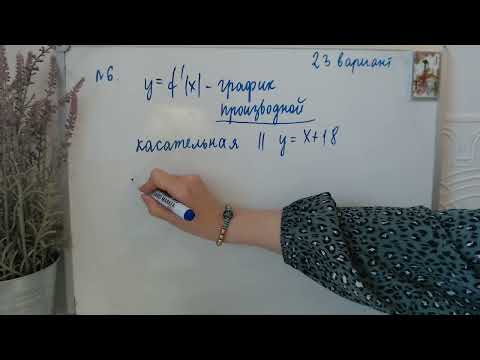 23 вариант
№6.
y = f'(x) - график
производной
касательная || y = x+18